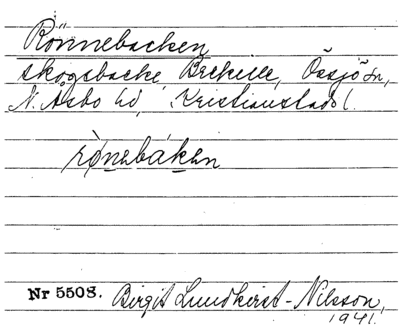 Rönnebacken
skogsbacke, Össjö sn,
N. Åsbo hd, Kristianstads l.
rönebaken
Nr 5508. Birgit Lundkvist-Nilsson,
1941.